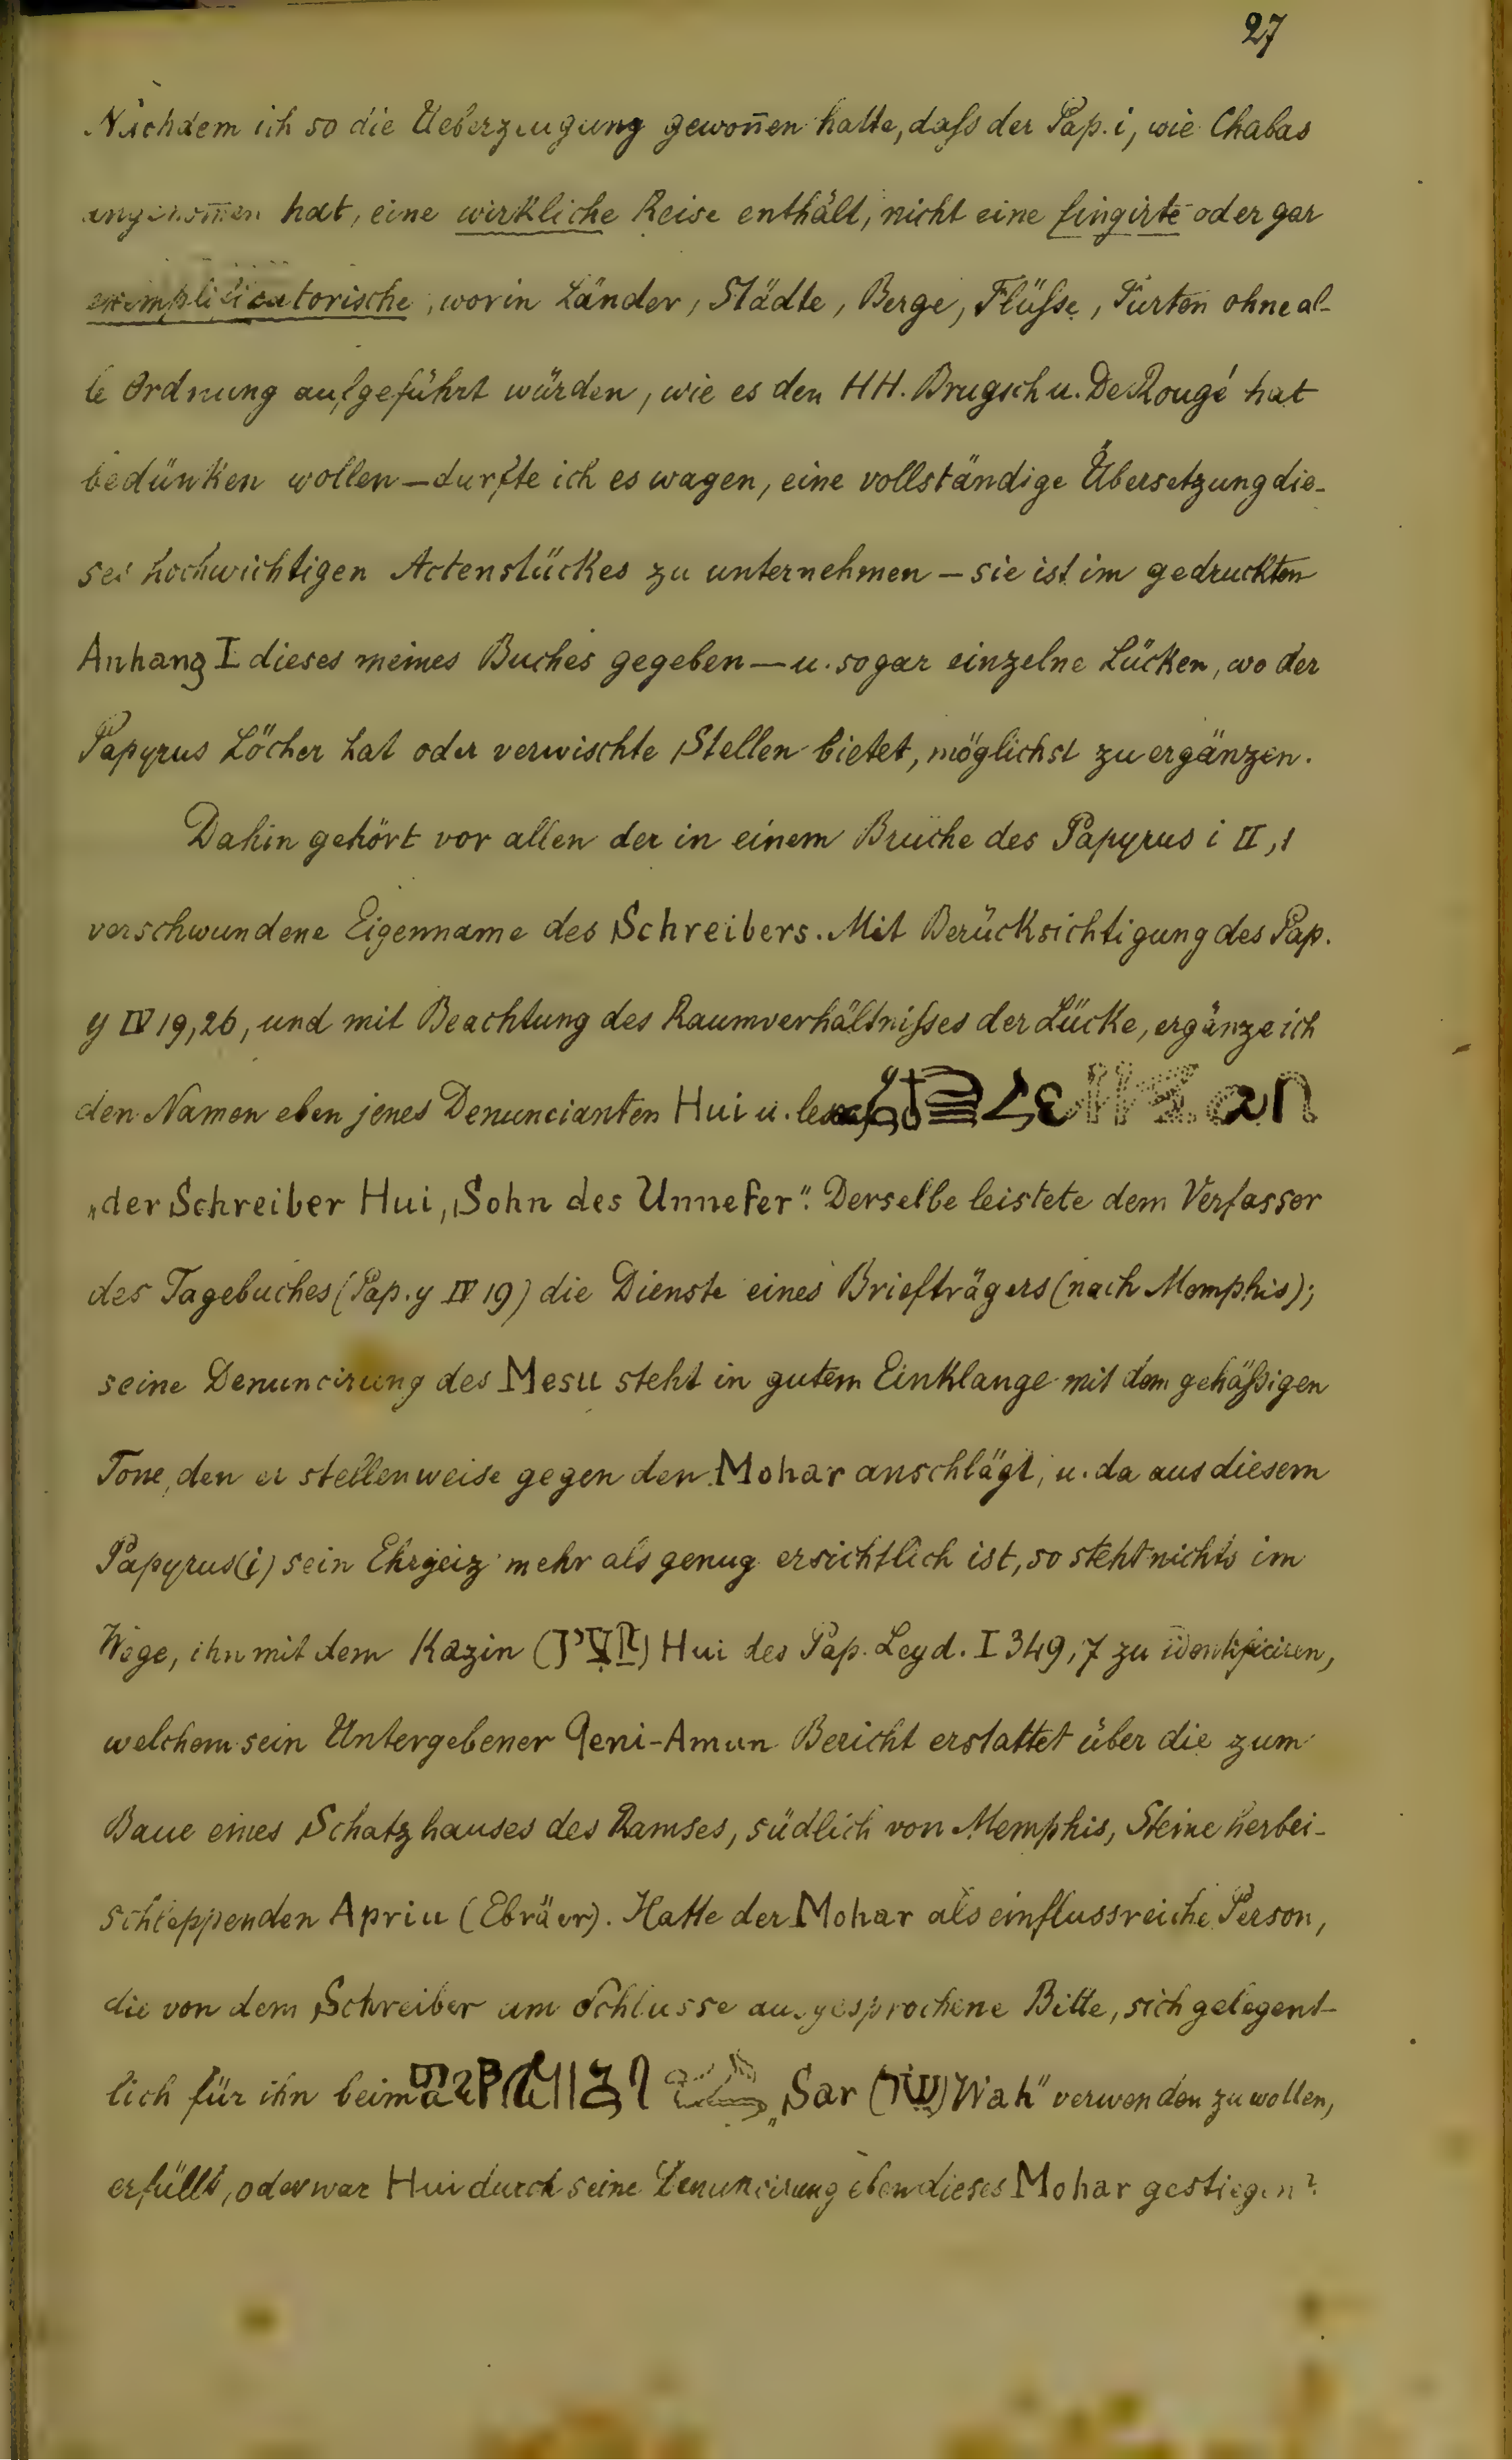 27
Nachdem ich so die Ueberzeugung gewon̄en hatte, daſs der Pap. i, wie Chabas
angenom̄en hat, eine wirkliche Reise enthält, nicht eine fingirte oder gar
exemplificatorische, worin Länder, Städte, Berge, Flüſse, Furten ohne al-
le Ordnung aufgeführt würden, wie es den HH. Brugsch u. DeRougé hat
bedünken wollen — durfte ich es wagen, eine vollständige Übersetzung die-
ses hochwichtigen Actenstückes zu unternehmen — sie ist im gedruckten
Anhang I dieses meines Buches gegeben — u. sogar einzelne Lücken, wo der
Papyrus Löcher hat oder verwischte Stellen bietet, möglichst zu ergänzen.
Dahin gehört vor allen der in einem Bruche des Papyrus i II, 1
verschwundene Eigenname des Schreibers. Mit Berücksichtigung des Pap.
y IV 19, 26, und mit Beachtung des Raumverhältniſses der Lücke, ergänze ich
den Namen eben jenes Denuncianten Hui u. lese
„der Schreiber Hui, Sohn des Unnefer“. Derselbe leistete dem Verfasser
des Tagebuches (Pap. y IV 19) die Dienste eines Briefträgers (nach Memphis);
seine Denuncirung des Mesu steht in gutem Einklange mit dem gehäſsigen
Tone, den er stellenweise gegen den Mohar anschlägt, u. da aus diesem
Papyrus (i) sein Ehrgeiz mehr als genug ersichtlich ist, so steht nichts im
Wege, ihn mit dem Kazin (קצין) Hui des Pap. Leyd. I 349, 7 zu identificiren,
welchem sein Untergebener Qeni-Amun Bericht erstattet über die zum
Baue eines Schatzhauses des Ramses, südlich von Memphis, Steine herbei-
schleppenden Apriu (Ebräer). Hatte der Mohar als einflussreiche Person,
die von dem Schreiber am Schlusse ausgesprochene Bitte, sich gelegent-
lich für ihn beim „Sar (שר) Wah“ verwenden zu wollen,
erfüllt, oder war Hui durch seine Denuncirung eben dieses Mohar gestiegen?